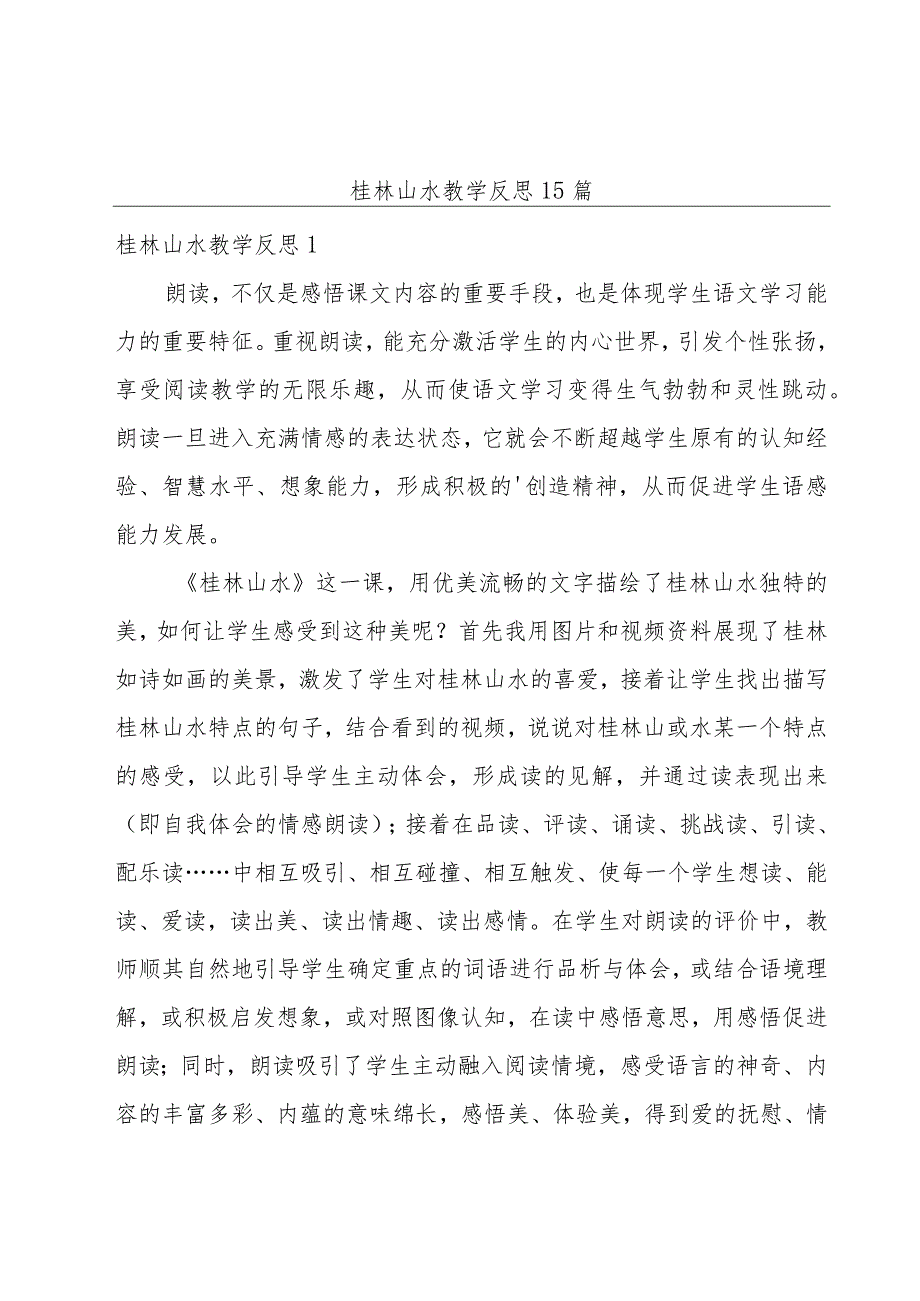 桂林山水教学反思 15 篇
桂林山水教学反思 1
朗读，不仅是感悟课文内容的重要手段，也是体现学生语文学习能
力的重要特征。重视朗读，能充分激活学生的内心世界，引发个性张扬，
享受阅读教学的无限乐趣，从而使语文学习变得生气勃勃和灵性跳动。
朗读一旦进入充满情感的表达状态，它就会不断超越学生原有的认知经
验、智慧水平、想象能力，形成积极的'创造精神，从而促进学生语感
能力发展。
《桂林山水》这一课，用优美流畅的文字描绘了桂林山水独特的
美，如何让学生感受到这种美呢？首先我用图片和视频资料展现了桂林
如诗如画的美景，激发了学生对桂林山水的喜爱，接着让学生找出描写
桂林山水特点的句子，结合看到的视频，说说对桂林山或水某一个特点
的感受，以此引导学生主动体会，形成读的见解，并通过读表现出来
（即自我体会的情感朗读）；接着在品读、评读、诵读、挑战读、引读、
配乐读……中相互吸引、相互碰撞、相互触发、使每一个学生想读、能
读、爱读，读出美、读出情趣、读出感情。在学生对朗读的评价中，教
师顺其自然地引导学生确定重点的词语进行品析与体会，或结合语境理
解，或积极启发想象，或对照图像认知，在读中感悟意思，用感悟促进
朗读；同时，朗读吸引了学生主动融入阅读情境，感受语言的神奇、内
容的丰富多彩、内蕴的意味绵长，感悟美、体验美，得到爱的抚慰、情